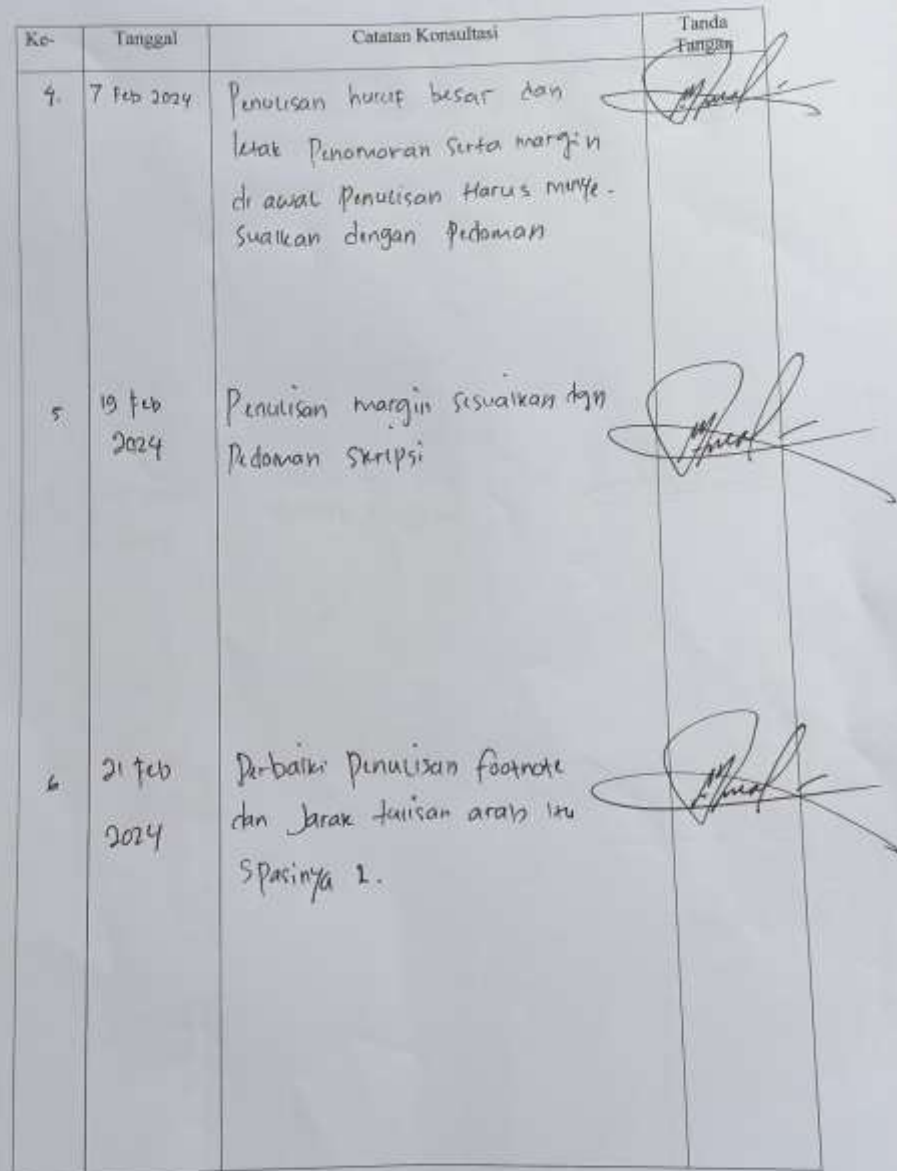 Ke- Tanggal Catatan Konsultasi Tanda
Tangan
4. 7 Feb 2024 Penulisan huruf besar dan
letak Penomoran serta margin
di awal Penulisan Harus menye-
suaikan dengan Pedoman
5 19 Feb Penulisan margin sesuaikan dgn
2024 Pedoman skripsi
6 21 Feb Perbaiki Penulisan footnote
dan Jarak tulisan arab itu
2024
Spasinya 1.